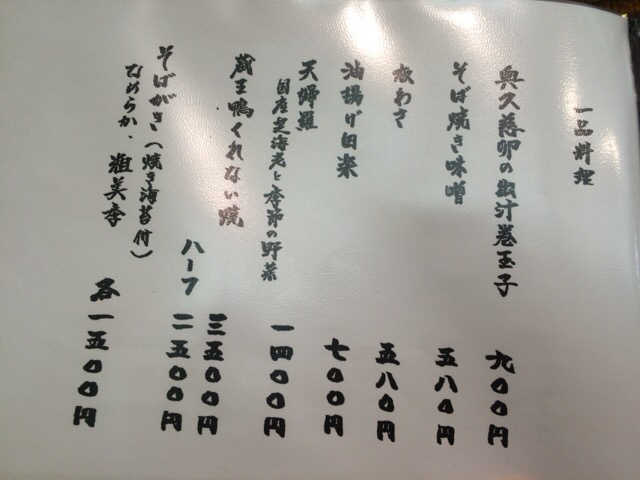 一品料理
奥久慈卵の出汁巻玉子 九００円
そば焼き味噌 五八０円
板わさ 五八０円
油揚げ日米 七００円
天婦羅
国産芝海老と季節の野菜 一四００円
蔵王鴨くれない焼 三五００円
ハーフ 二五００円
そばがき（焼き海苔付）
なめらか、粗美季 各一五００円